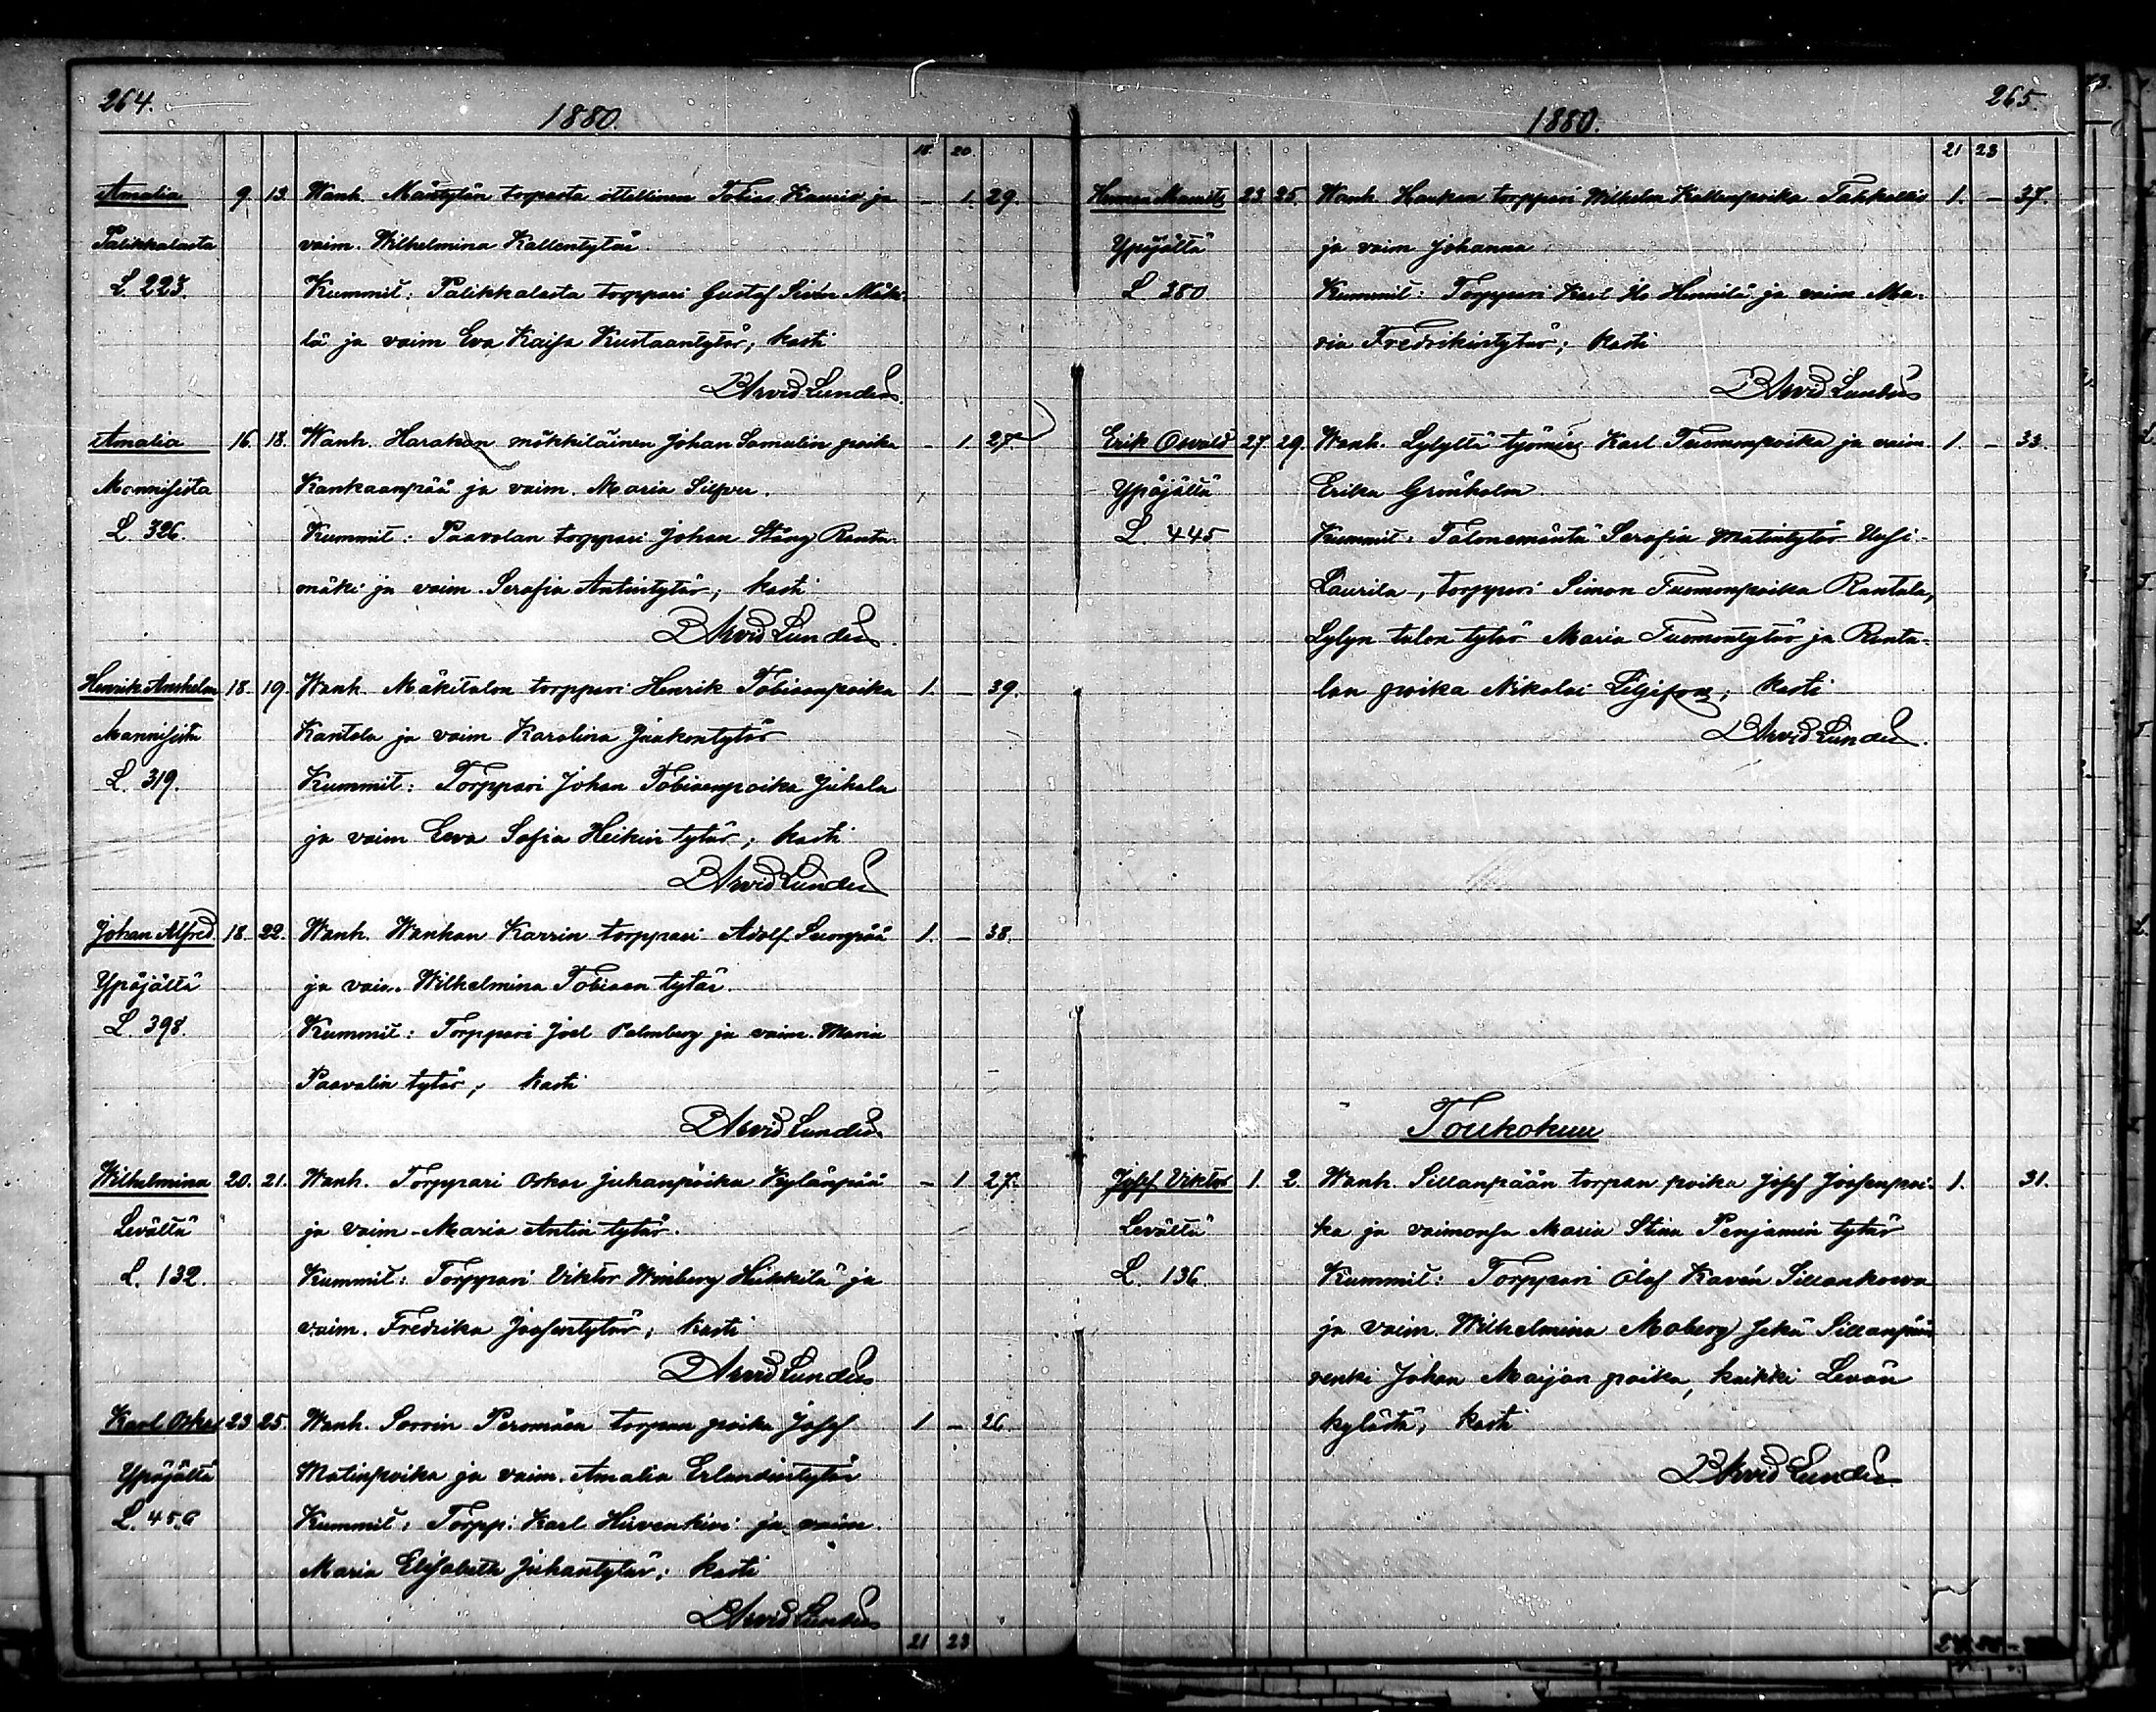 264.
1880.
18. 20.
Amalia 9. 13. Wanh. Mäntylän torpasta ittellinen Tobias Kauris ja — 1. 29.
Palikkalasta vaim. Wilhelmina Kallentytär
L. 223. Kummit: Palikkalasta torppari Gustaf Siren Mäki-
lä ja vaim Eva Kaisa Kustaantytär; kasti
B Arvid Lundens.
Amalia 16. 18. Wanh. Harakan mökkiläinen Johan Samulin poika — 1. 27.
Mannisista Kankaanpää ja vaim. Maria Silfver.
L. 326. Kummit: Paavolan torppari Johan Stång Ranta-
mäki ja vaim. Serafia Antintytär; kasti
B Arvid Lundens.
Henrik Anshelm 18. 19. Wanh. Mäkitalon torppari Henrik Tobiaanpoika 1. — 39.
Mannisista Kantola ja vaim Karolina Jaakontytär
L. 319. Kummit: Torppari Johan Tobiaanpoika Juhala
ja vaim Eeva Sofia Heikin tytär; kasti
B Arvid Lundens
Johan Alfred 18. 22. Wanh. Wanhan Karrin torppari Adolf Suonpää 1. — 38.
Ypäjältä ja vaim. Wilhelmina Tobiaan tytär.
L. 398. Kummit: Torppari Joel Palmberg ja vaim. Maria
Paavalin tytär; kasti
B Arvid Lundens
Wilhelmina 20. 21. Wanh. Torppari Oskar Juhanpoika Kylänpää — 1 27.
Levältä ja vaim. Maria Antin tytär.
L. 132. Kummit: Torppari Viktor Winberg Heikkilä ja
vaim. Fredrika Joosentytär; kasti
B Arvid Lundens
Karl Oskar 23 25. Wanh. Sorrin Peromäen torpan poika Josef 1 — 26.
Ypäjältä Matinpoika ja vaim. Amalia Erlandintytär
L. 456 Kummit: Torpp: Karl Hirvenkivi ja vaim.
Maria Elisabeth Juhantytär; kasti
B Arvid Lundens
21 23
265
1880.
21 23
Herman 23. 25. Wanh. Haukan torppari Wilhelm Kallenpoika 1. — 37.
Ypäjältä ja vaim Johanna
L 380 Kummit: Torppari Karl Heinilä ja vaim Ma-
ria Fredrikintytär; kasti
B Arvid Lundens
Erik Osvald 27. 29. Wanh. Lylyltä työmies Karl Tuomonpoika ja vaim 1. — 33.
Ypäjältä Erika Grönholm.
L. 445 Kummit: Talonemäntä Serafia Matintytär Uusi-
Laurila, torppari Simon Tuomonpoika Rantala,
Lylyn talon tytär Maria Tuomontytär ja Ranta-
lan poika Nikolai Liljefors; kasti
B Arvid Lundens.
Toukokuu
Josef Viktor 1. 2. Wanh. Sillanpään torpan poika Josef Joosenpoi- 1. 31.
Levältä ka ja vaimonsa Maria Stina Penjamin tytär
L. 136. Kummit: Torppari Olof Kavén Sillankorva
ja vaim. Wilhelmina Moberg sekä Sillanpään
renki Johan Maijan poika, kaikki Levän
kylästä; kasti
B Arvid Lundens